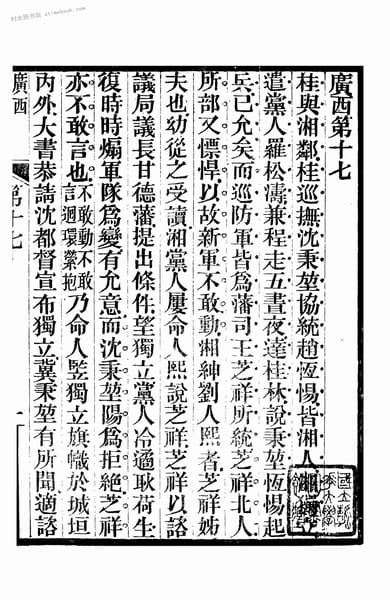 时光图书馆 atimebook.com
廣西第十七
桂與湘鄰桂巡撫沈秉堃協統趙恆惕皆湘人
遣黨人羅松濤兼程走五晝夜達桂林說秉堃恆惕起
兵已允矣而巡防軍皆為藩司王芝祥所統芝祥北人
所部又慓悍以故新軍不敢動湘紳劉人熙者芝祥姊
夫也幼從之受讀湘黨人屢命人熙說芝祥芝祥以諮
議局議長甘德蕃提出條件望獨立黨人冷遹耿荷生
復時時煽軍隊為變有允意而沈秉堃陽為拒絕芝祥
亦不敢言也不敢動不敢言迴環縈抱乃命人豎獨立旗幟於城垣
內外大書恭請沈都督宣布獨立冀秉堃有所聞適諮
廣西
第十七
一